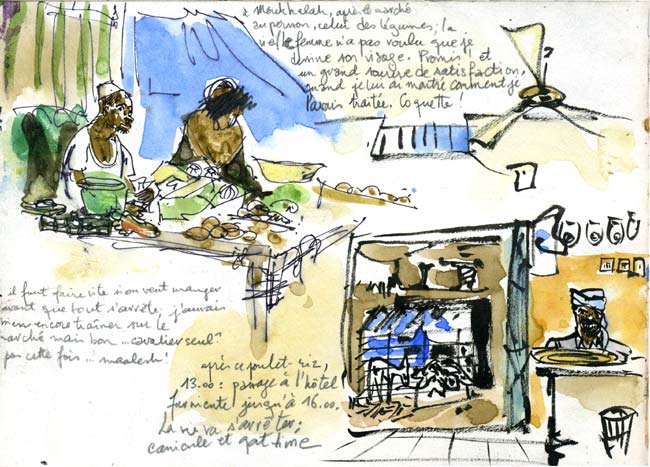 à Moukhalah, après le marché
au poisson, celui des légumes; la
vieille femme n'a pas voulu que je
dessine son visage. Promis! et
un grand sourire de satisfaction,
quand je lui ai montré comment je
l'avais traitée. Coquette!
il faut faire vite si on veut manger
avant que tout s'arrête. j'aurais
bien encore traîner sur le
marché mais bon... "cavalier seul"
pas cette fois... maalesh!
après ce poulet-riz,
13.00: passage à l'hôtel
farniente jusqu'à 16.00.
La vie va s'arrêter;
canicule et qat time